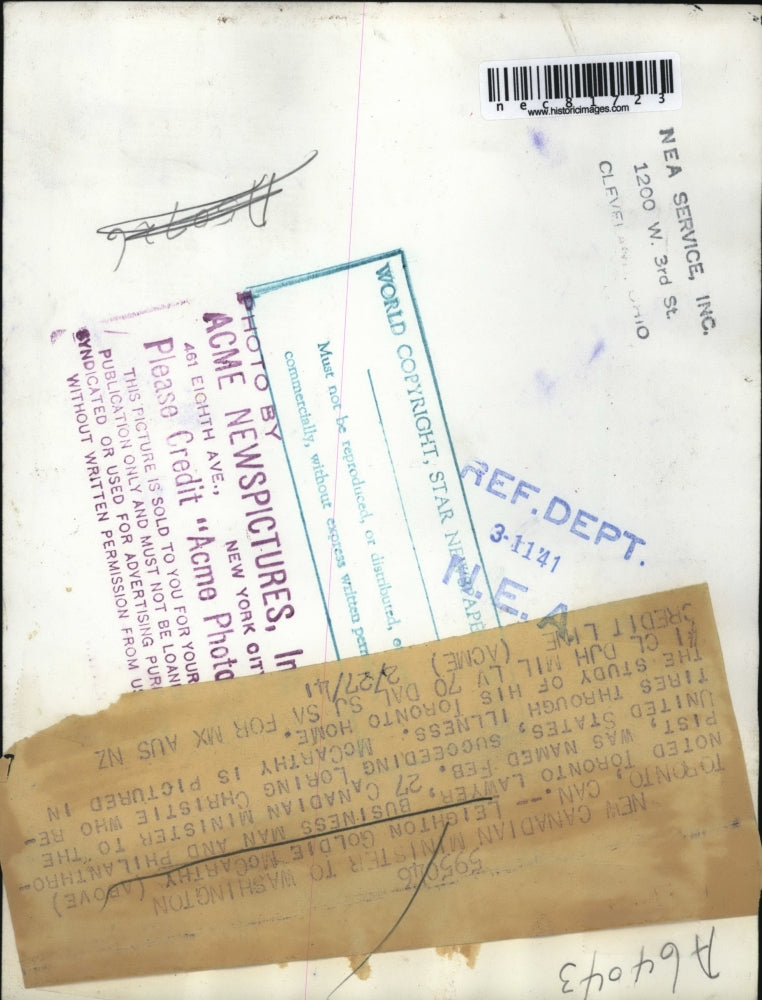 nec81723
www.historicimages.com
NEA SERVICE, INC.
1200 W. 3rd St.
CLEVELAND, OHIO
WORLD COPYRIGHT, STAR NEWSPAPE
Must not be reproduced, or distributed, o
commercially, without express written perm
PHOTO BY
ACME NEWSPICTURES, In
461 EIGHTH AVE., NEW YORK CIT
Please Credit "Acme Photo
THIS PICTURE IS SOLD TO YOU FOR YOUR
PUBLICATION ONLY AND MUST NOT BE LOAN
SYNDICATED OR USED FOR ADVERTISING PUR
WITHOUT WRITTEN PERMISSION FROM US
REF. DEPT.
3-1141
N.E.A
595046
NEW CANADIAN MINISTER TO WASHINGTON
TORONTO, CAN.-- LEIGHTON GOLDIE McCARTHY (ABOVE)
NOTED TORONTO LAWYER, BUSINESS MAN AND PHILANTHRO-
PIST, WAS NAMED FEB. 27 CANADIAN MINISTER TO THE
UNITED STATES, SUCCEEDING LORING CHRISTIE WHO RE-
TIRES THROUGH ILLNESS. McCARTHY IS PICTURED IN
THE STUDY OF HIS TORONTO HOME.
#1 CL DJH MIL LV 70 DAL SJ SA FOR MX AUS NZ
CREDIT LINE (ACME) 2/27/41
A64043